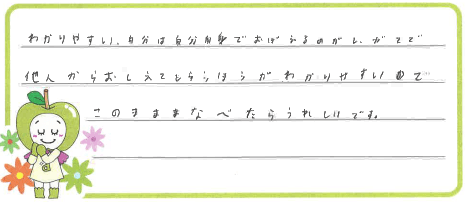 わかりやすい。自分は自分自身でおぼえるのがし、がてで
他人からおしえてもらうほうがわかりやすいので
このまままなべたらうれしいです。